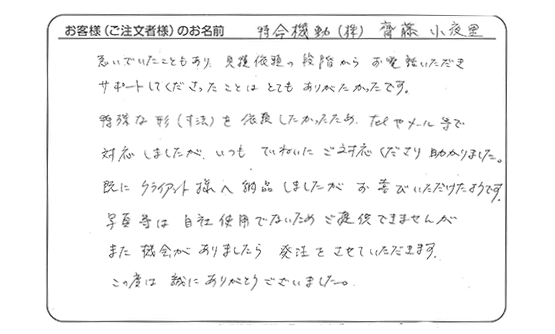 お客様（ご注文者様）のお名前 特合機動（株） 齋藤 小夜里
急いでいたこともあり、見積依頼の段階から お電話いただき
サポートしてくださったことは とても ありがたかったです。
特殊な形（寸法）を 依頼したかったため、telやメール等で
対応しましたが、いつも ていねいに ご対応くださり 助かりました。
既に クライアント様へ 納品しましたが お喜びいただけたようです。
写真等は 自社使用でないため ご提供できませんが
また 機会がありましたら 発注をさせていただきます。
この度は 誠に ありがとうございました。